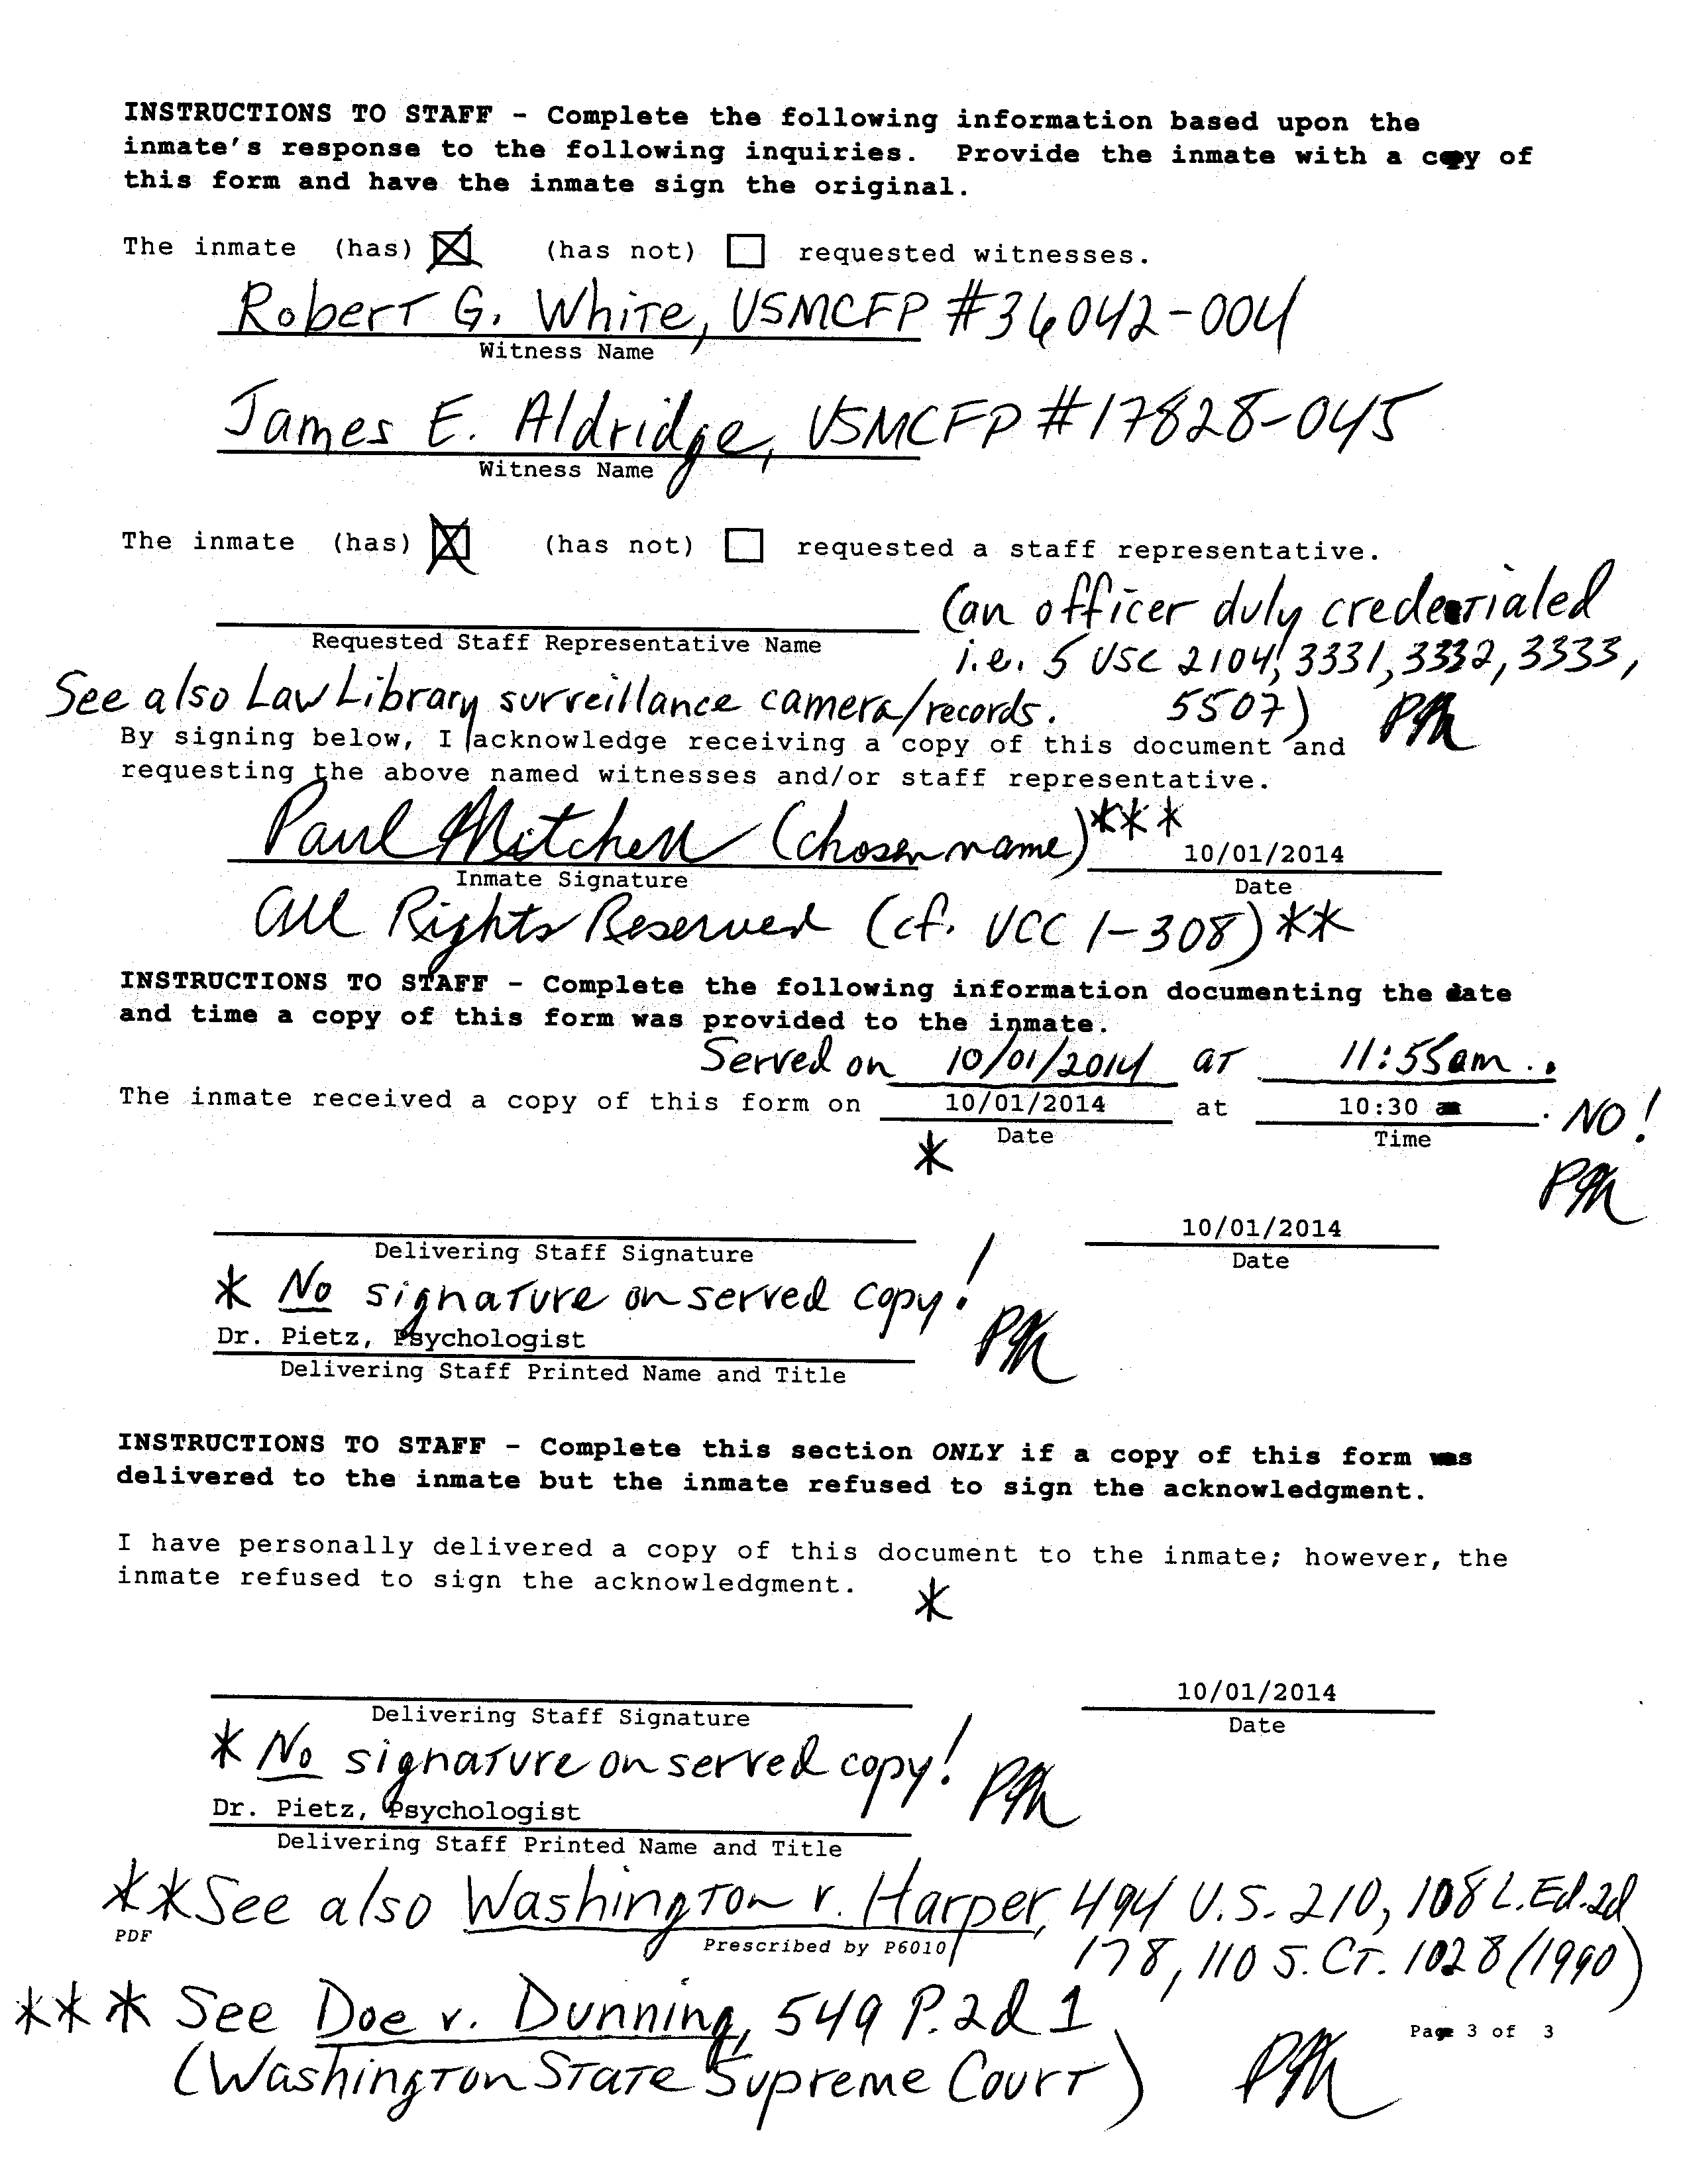 INSTRUCTIONS TO STAFF - Complete the following information based upon the
inmate's response to the following inquiries. Provide the inmate with a copy of
this form and have the inmate sign the original.
The inmate (has) ☒ (has not) ☐ requested witnesses.
Robert G. White, USMCFP #36042-004
Witness Name
James E. Aldridge, USMCFP #17828-045
Witness Name
The inmate (has) ☒ (has not) ☐ requested a staff representative.
(an officer duly credentialed
Requested Staff Representative Name
i.e. 5 USC 2104, 3331, 3332, 3333,
See also Law Library surveillance camera/records. 5507) PAM
By signing below, I acknowledge receiving a copy of this document and
requesting the above named witnesses and/or staff representative.
Paul Mitchell (chosen name)*** 10/01/2014
Inmate Signature Date
All Rights Reserved (cf. UCC 1-308)**
INSTRUCTIONS TO STAFF - Complete the following information documenting the date
and time a copy of this form was provided to the inmate.
Served on 10/01/2014 at 11:55am..
The inmate received a copy of this form on 10/01/2014 at 10:30 am. NO!
* Date Time
PAM
10/01/2014
Delivering Staff Signature Date
* No signature on served copy!
Dr. Pietz, Psychologist PAM
Delivering Staff Printed Name and Title
INSTRUCTIONS TO STAFF - Complete this section ONLY if a copy of this form was
delivered to the inmate but the inmate refused to sign the acknowledgment.
I have personally delivered a copy of this document to the inmate; however, the
inmate refused to sign the acknowledgment. *
10/01/2014
Delivering Staff Signature Date
* No signature on served copy! PAM
Dr. Pietz, Psychologist
Delivering Staff Printed Name and Title
**See also Washington v. Harper, 494 U.S. 210, 108 L.Ed.2d
PDF Prescribed by P6010
178, 110 S.Ct. 1028 (1990)
*** See Doe v. Dunning, 549 P.2d 1
Page 3 of 3
(Washington State Supreme Court) PAM